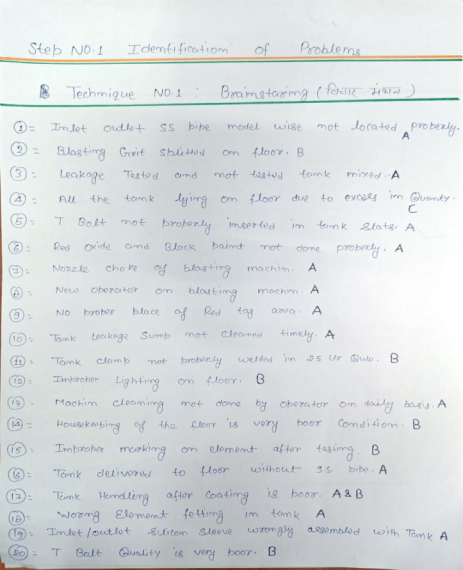 Step NO.1 Identification of Problems
Technique NO.1 : Brainstaring (विचार मंथन)
① = Inlet outlet SS pipe model wise not located properly. A
② = Blasting Grit shlitted on floor. B
③ = Leakage Tested and not tested tank mixed. A
④ = All the tank lying on floor due to excess in Quanty. C
⑤ = T Bolt not properly inserted in tank Slats. A
⑥ = Red oxide and Black paint not done properly. A
⑦ = Nozzle choke of blasting machin. A
⑧ = New operator on blasting machin. A
⑨ = No proper place of Red tag area. A
⑩ = Tank leakage Sump not cleaned timely. A
⑪ = Tank clamp not properly welded in 25 Ur B
⑫ = Improber Lighting on floor. B
⑬ = Machin cleaming not done by operator on daily basis. A
⑭ = Housekeeping of the floor is very poor Condition. B
⑮ = Improber marking on element after testing. B
⑯ = Tank delivered to floor without SS pipe. A
⑰ = Tank Handling after Coating is poor. A & B
⑱ = Worng Element fetting in tank A
⑲ = Inlet/outlet Silicon Sleeve wrongly assembled with Tank A
⑳ = T Balt Quality is very poor. B